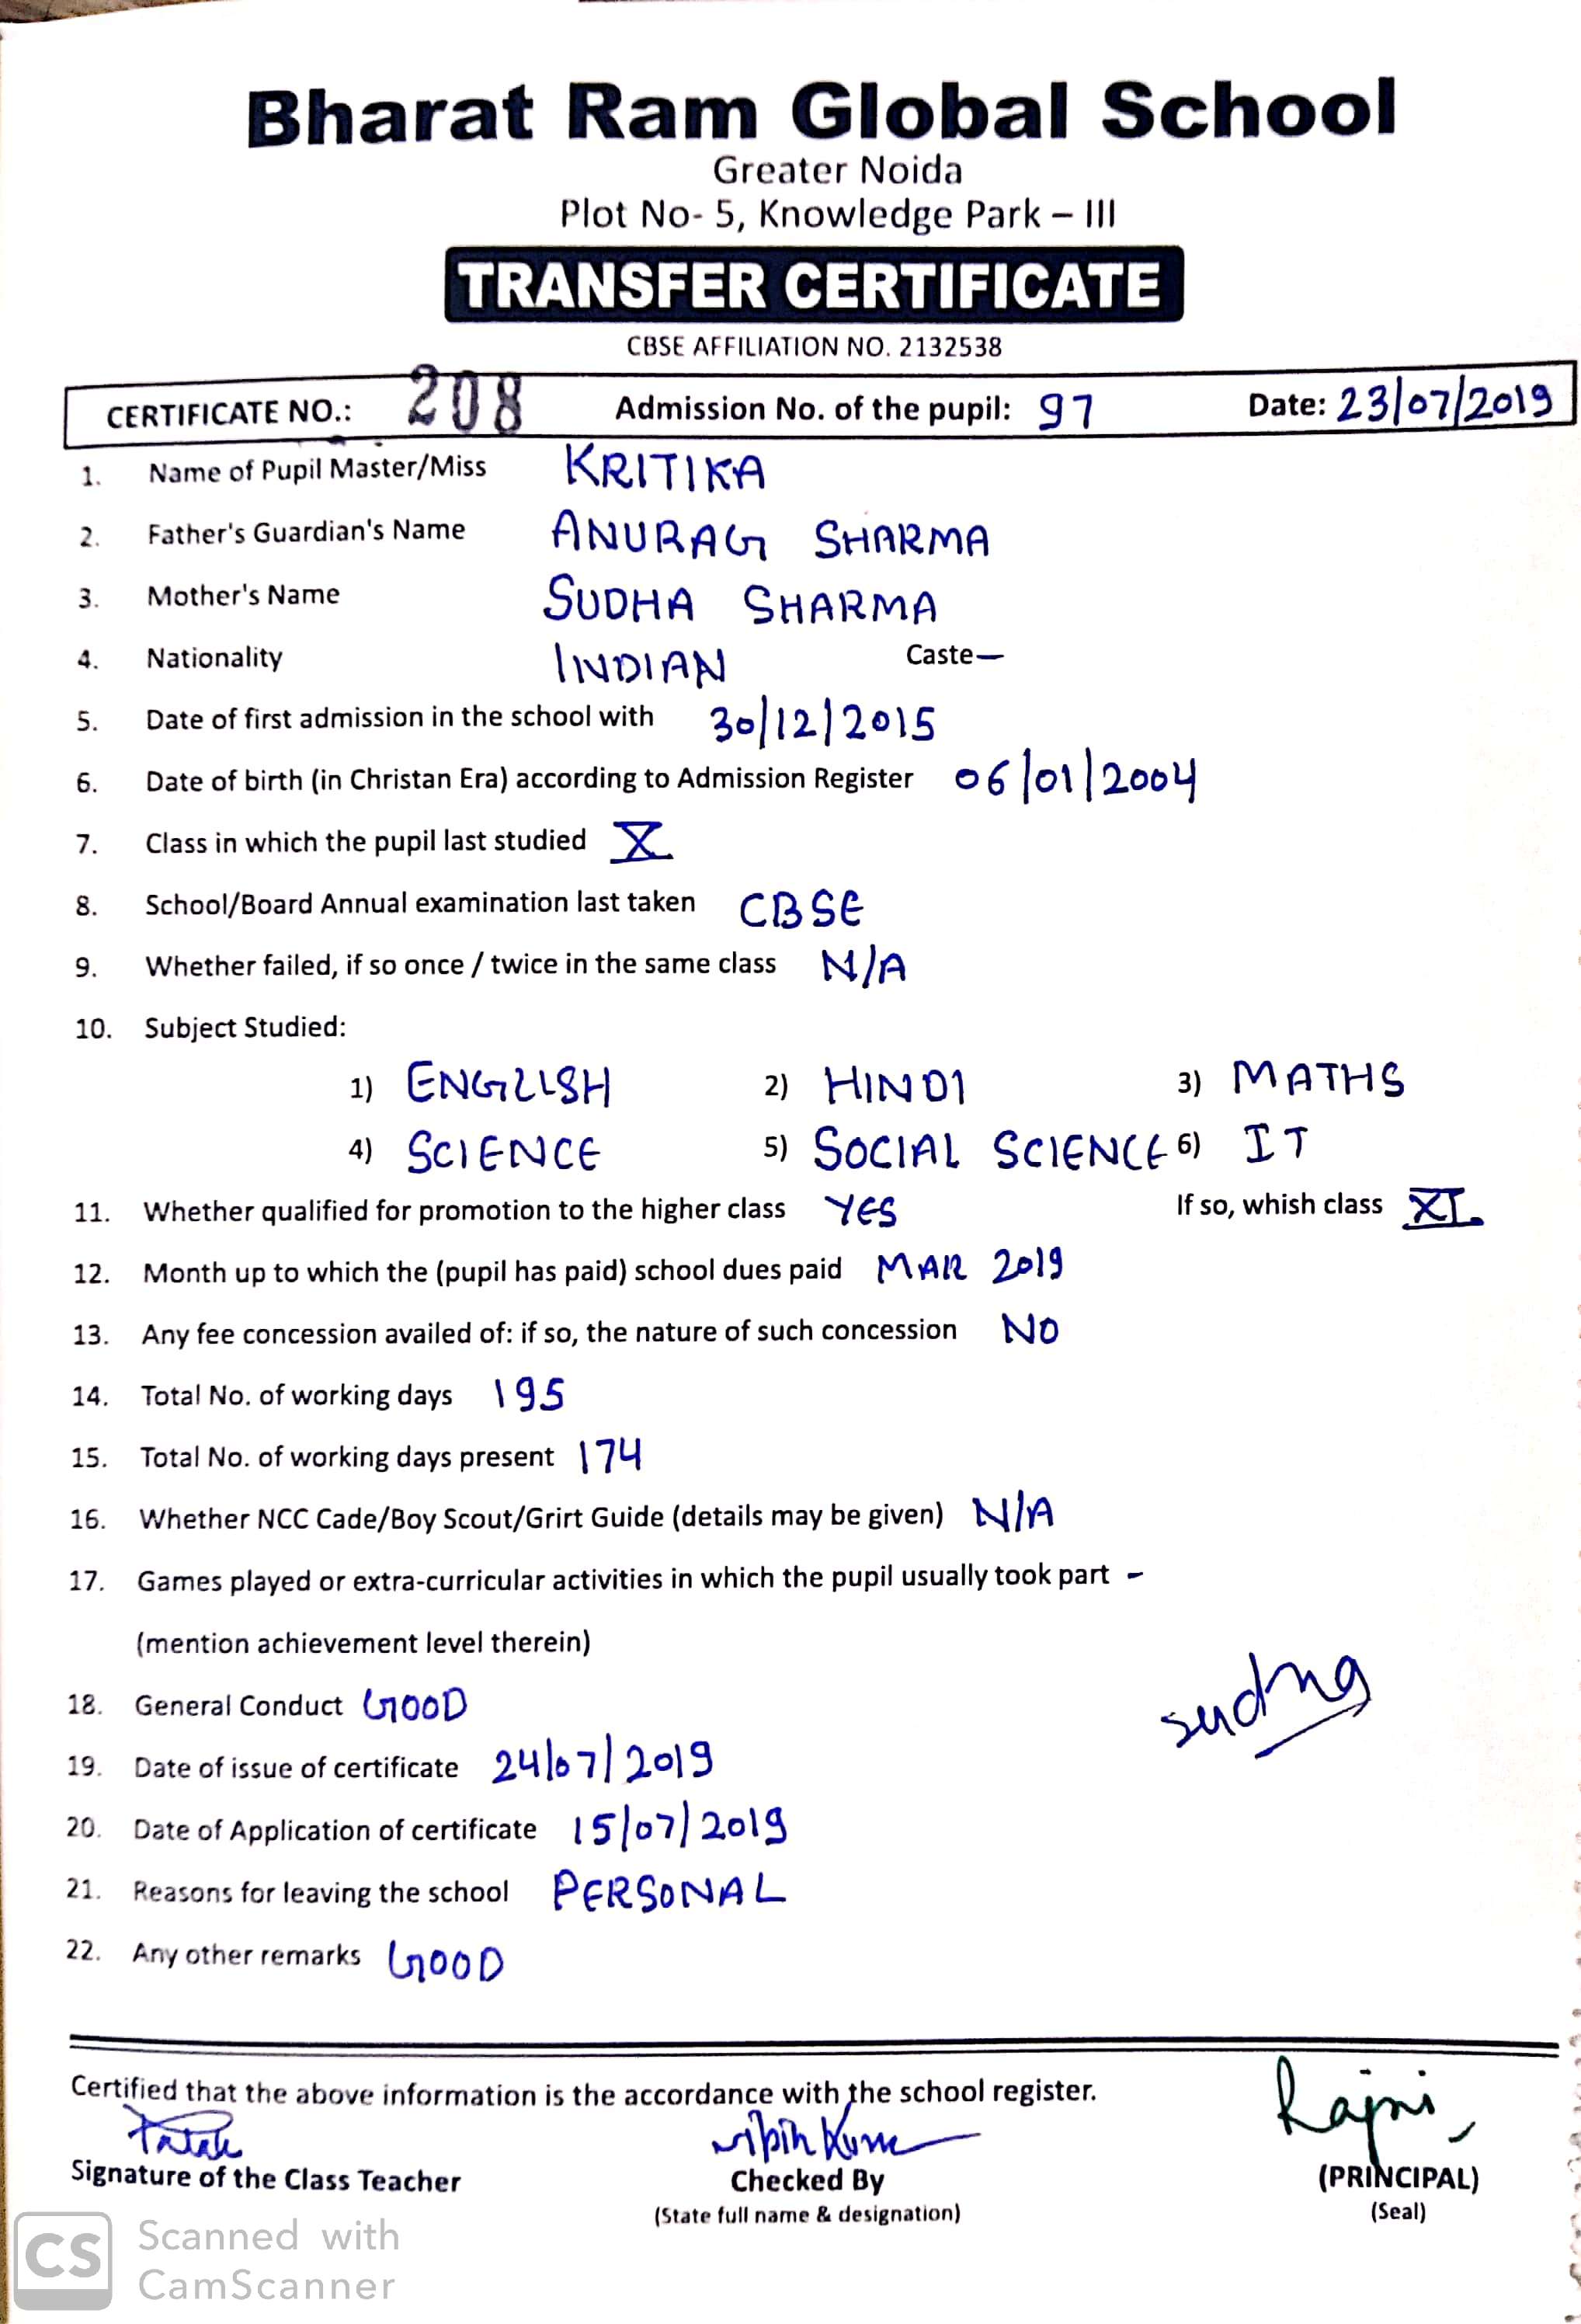 Bharat Ram Global School
Greater Noida
Plot No- 5, Knowledge Park – III
TRANSFER CERTIFICATE
CBSE AFFILIATION NO. 2132538
CERTIFICATE NO.: 208 Admission No. of the pupil: 97 Date: 23/07/2019
1. Name of Pupil Master/Miss KRITIKA
2. Father's Guardian's Name ANURAG SHARMA
3. Mother's Name SUDHA SHARMA
4. Nationality INDIAN Caste—
5. Date of first admission in the school with 30/12/2015
6. Date of birth (in Christan Era) according to Admission Register 06/01/2004
7. Class in which the pupil last studied X
8. School/Board Annual examination last taken CBSE
9. Whether failed, if so once / twice in the same class N/A
10. Subject Studied:
1) ENGLISH 2) HINDI 3) MATHS
4) SCIENCE 5) SOCIAL SCIENCE 6) IT
11. Whether qualified for promotion to the higher class YES If so, whish class XI
12. Month up to which the (pupil has paid) school dues paid MAR 2019
13. Any fee concession availed of: if so, the nature of such concession NO
14. Total No. of working days 195
15. Total No. of working days present 174
16. Whether NCC Cade/Boy Scout/Grirt Guide (details may be given) N/A
17. Games played or extra-curricular activities in which the pupil usually took part -
(mention achievement level therein)
18. General Conduct GOOD
19. Date of issue of certificate 24/07/2019
20. Date of Application of certificate 15/07/2019
21. Reasons for leaving the school PERSONAL
22. Any other remarks GOOD
Certified that the above information is the accordance with the school register.
Rajni
Signature of the Class Teacher Checked By (PRINCIPAL)
(State full name & designation) (Seal)
CS Scanned with
CamScanner